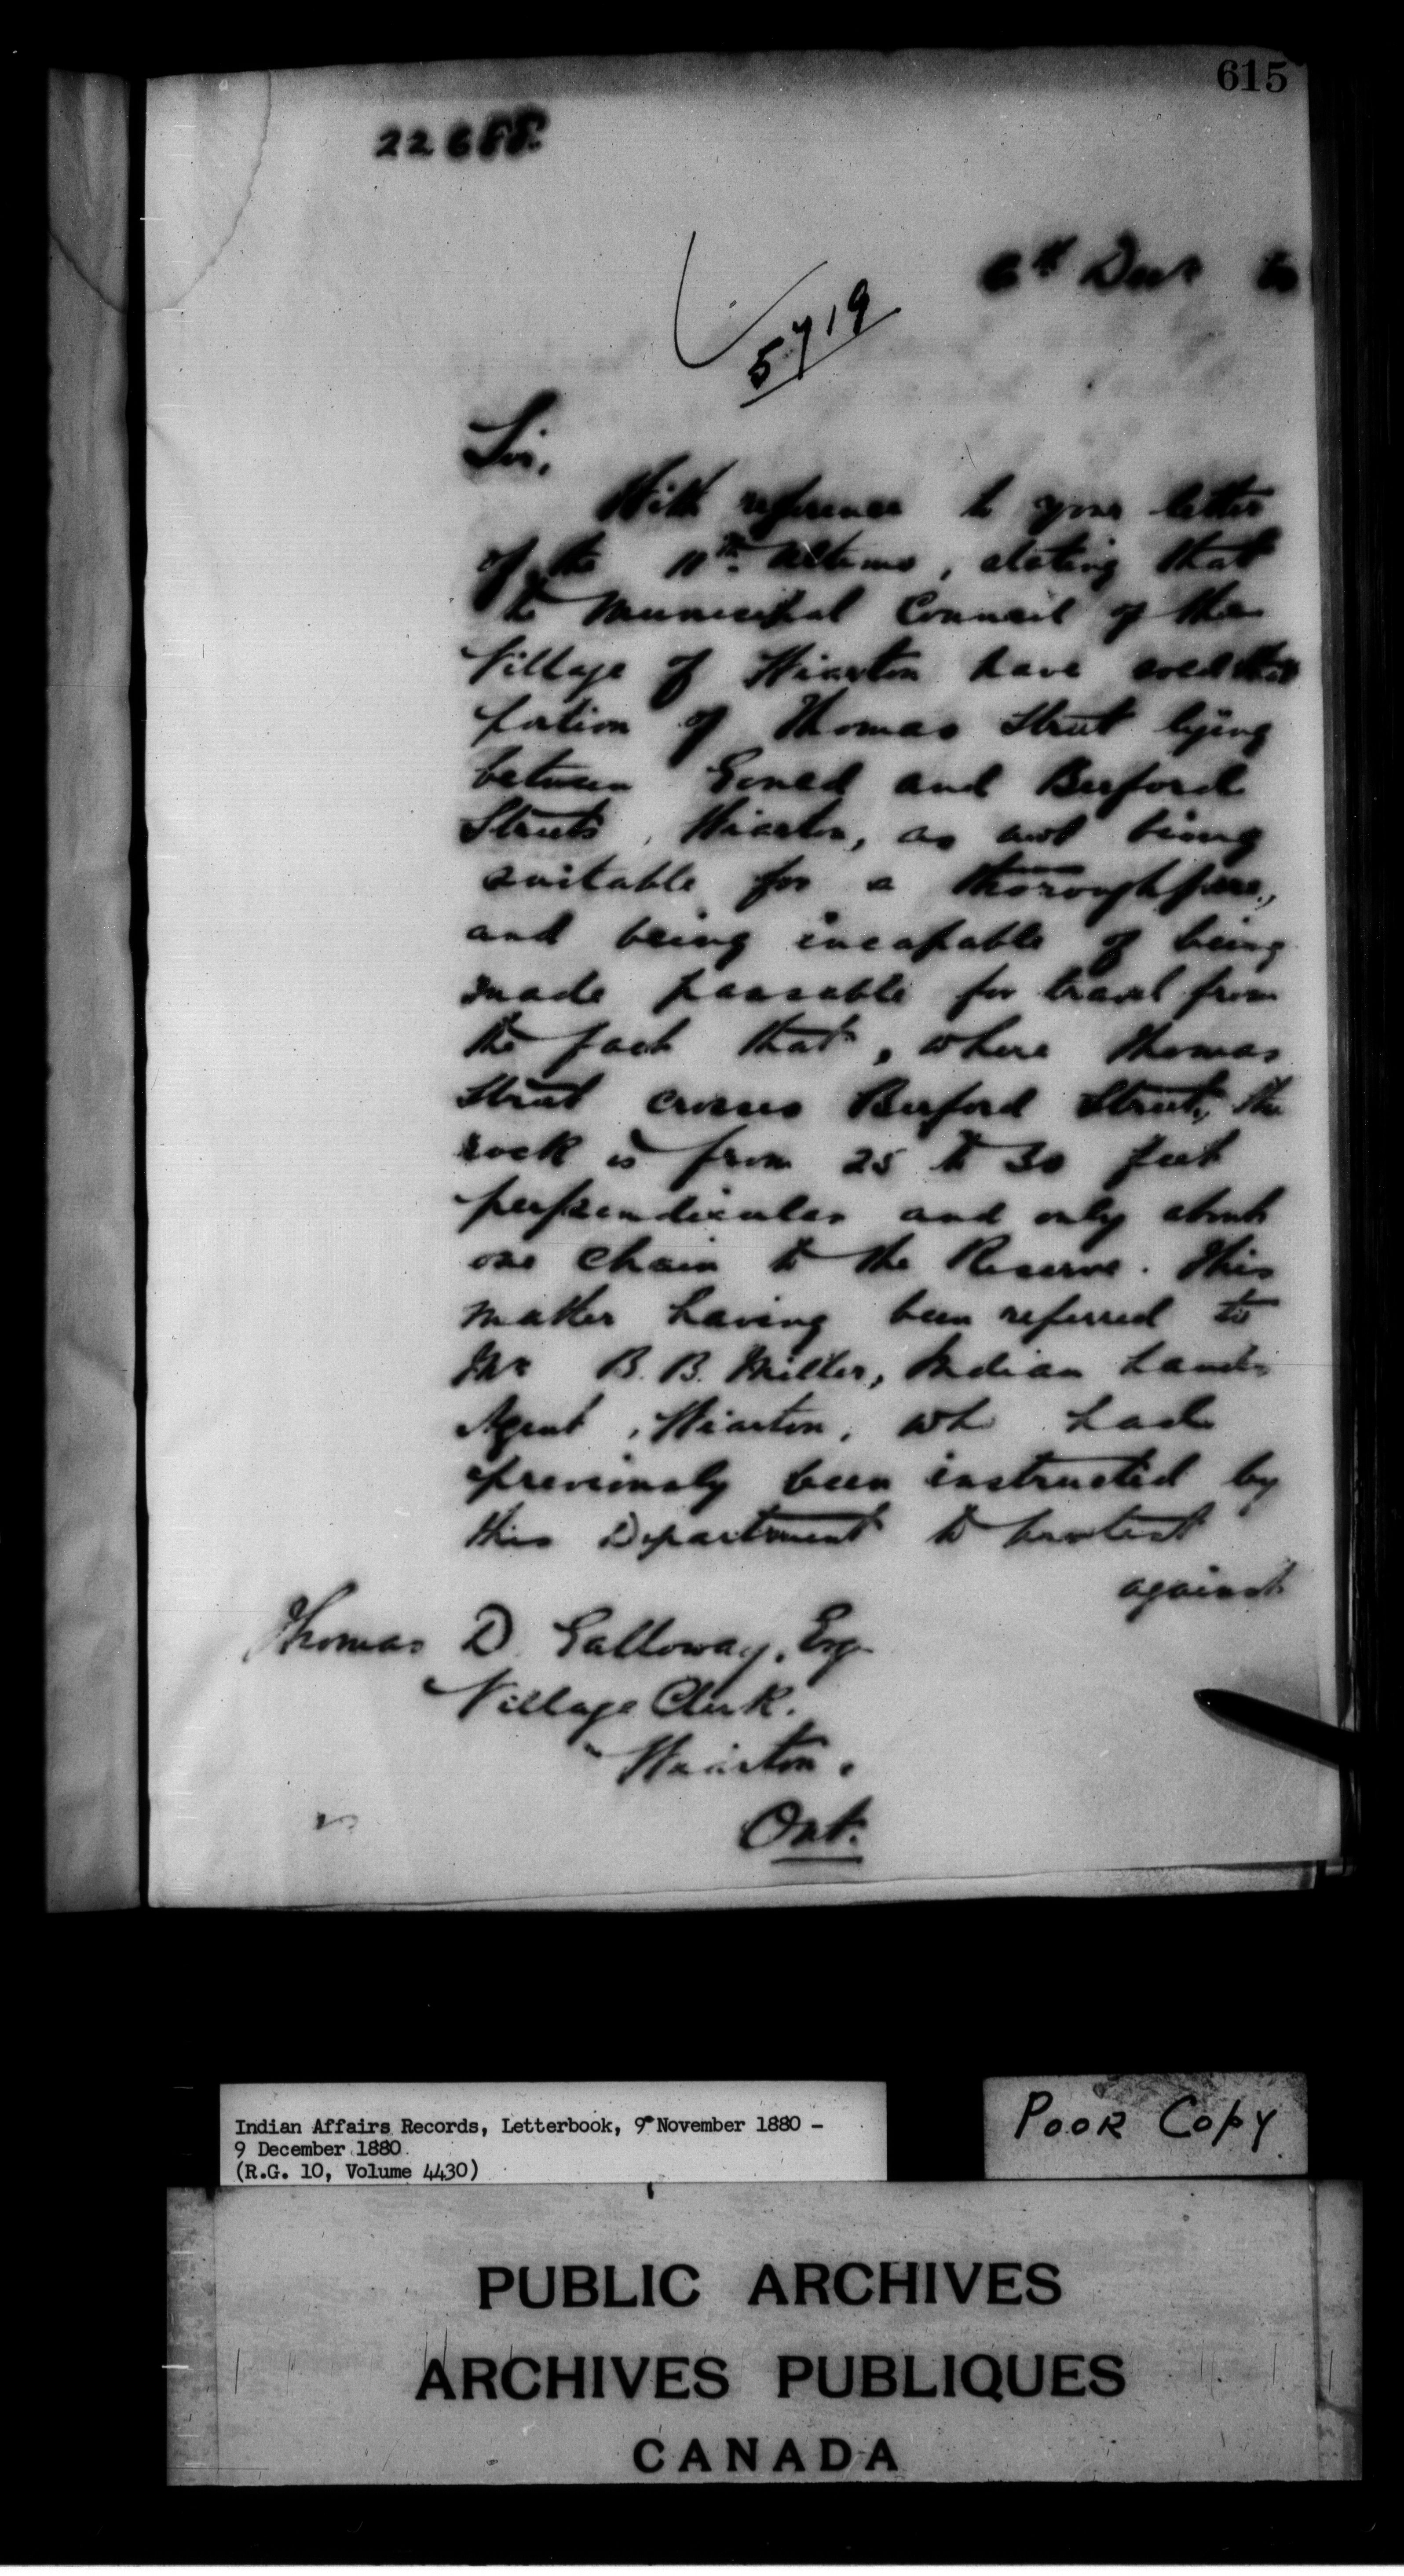 615
22688.
6th Decr 80
5719
Sir,
With reference to your letter
of the 11th ultimo, stating that
the Municipal Council of the
Village of Wiarton have sold that
portion of Thomas Street lying
between Gould and Berford
Streets, Wiarton, as not being
suitable for a thoroughfare,
and being incapable of being
made passable for travel from
the fact that, where Thomas
Street crosses Berford Street, the
rock is from 25 to 30 feet
perpendicular and only about
one chain to the Reserve. This
matter having been referred to
Mr B. B. Miller, Indian Lands
Agent, Wiarton, who had
previously been instructed by
this Department to protest
against
Thomas D. Galloway, Esq
Village Clerk.
Wiarton.
Ont.
Indian Affairs Records, Letterbook, 9 November 1880 -
9 December 1880.
(R.G. 10, Volume 4430)
POOR COPY
PUBLIC ARCHIVES
ARCHIVES PUBLIQUES
CANADA